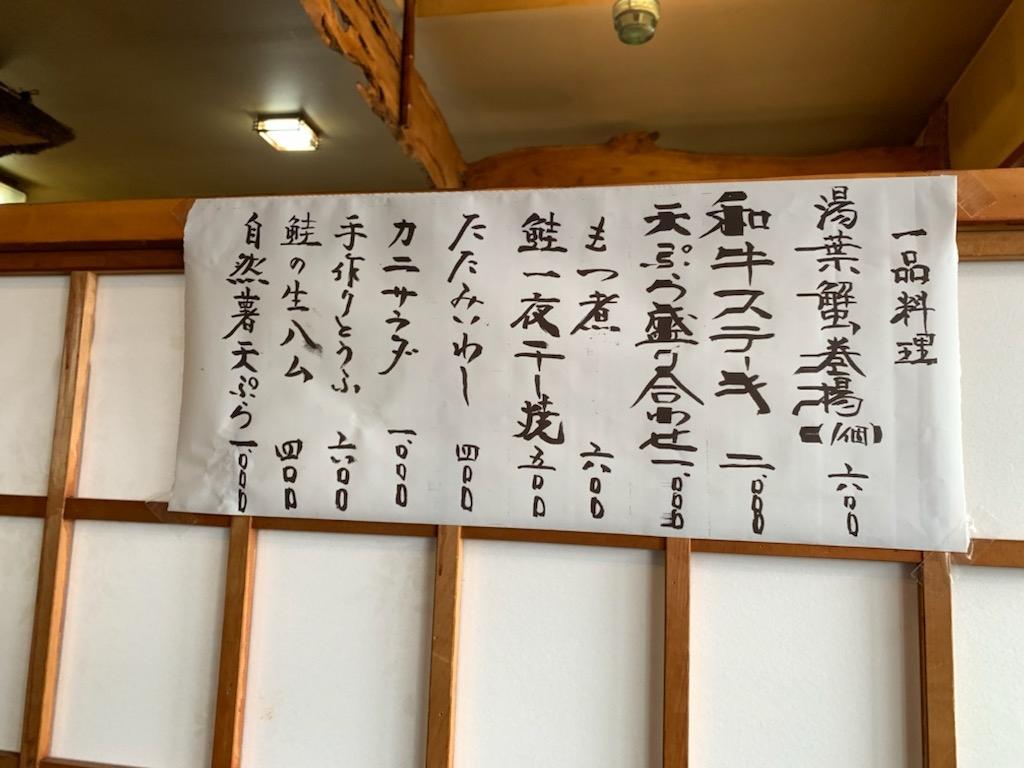 一品料理
湯葉蟹巻揚(1個) 六〇〇
和牛ステーキ 二、〇〇〇
天ぷら盛り合わせ 一、〇〇〇
もつ煮 六〇〇
鮭一夜干し焼 五〇〇
たたみいわし 四〇〇
カニサラダ 一、〇〇〇
手作りとうふ 六〇〇
鮭の生ハム 四〇〇
自然薯天ぷら 一、〇〇〇